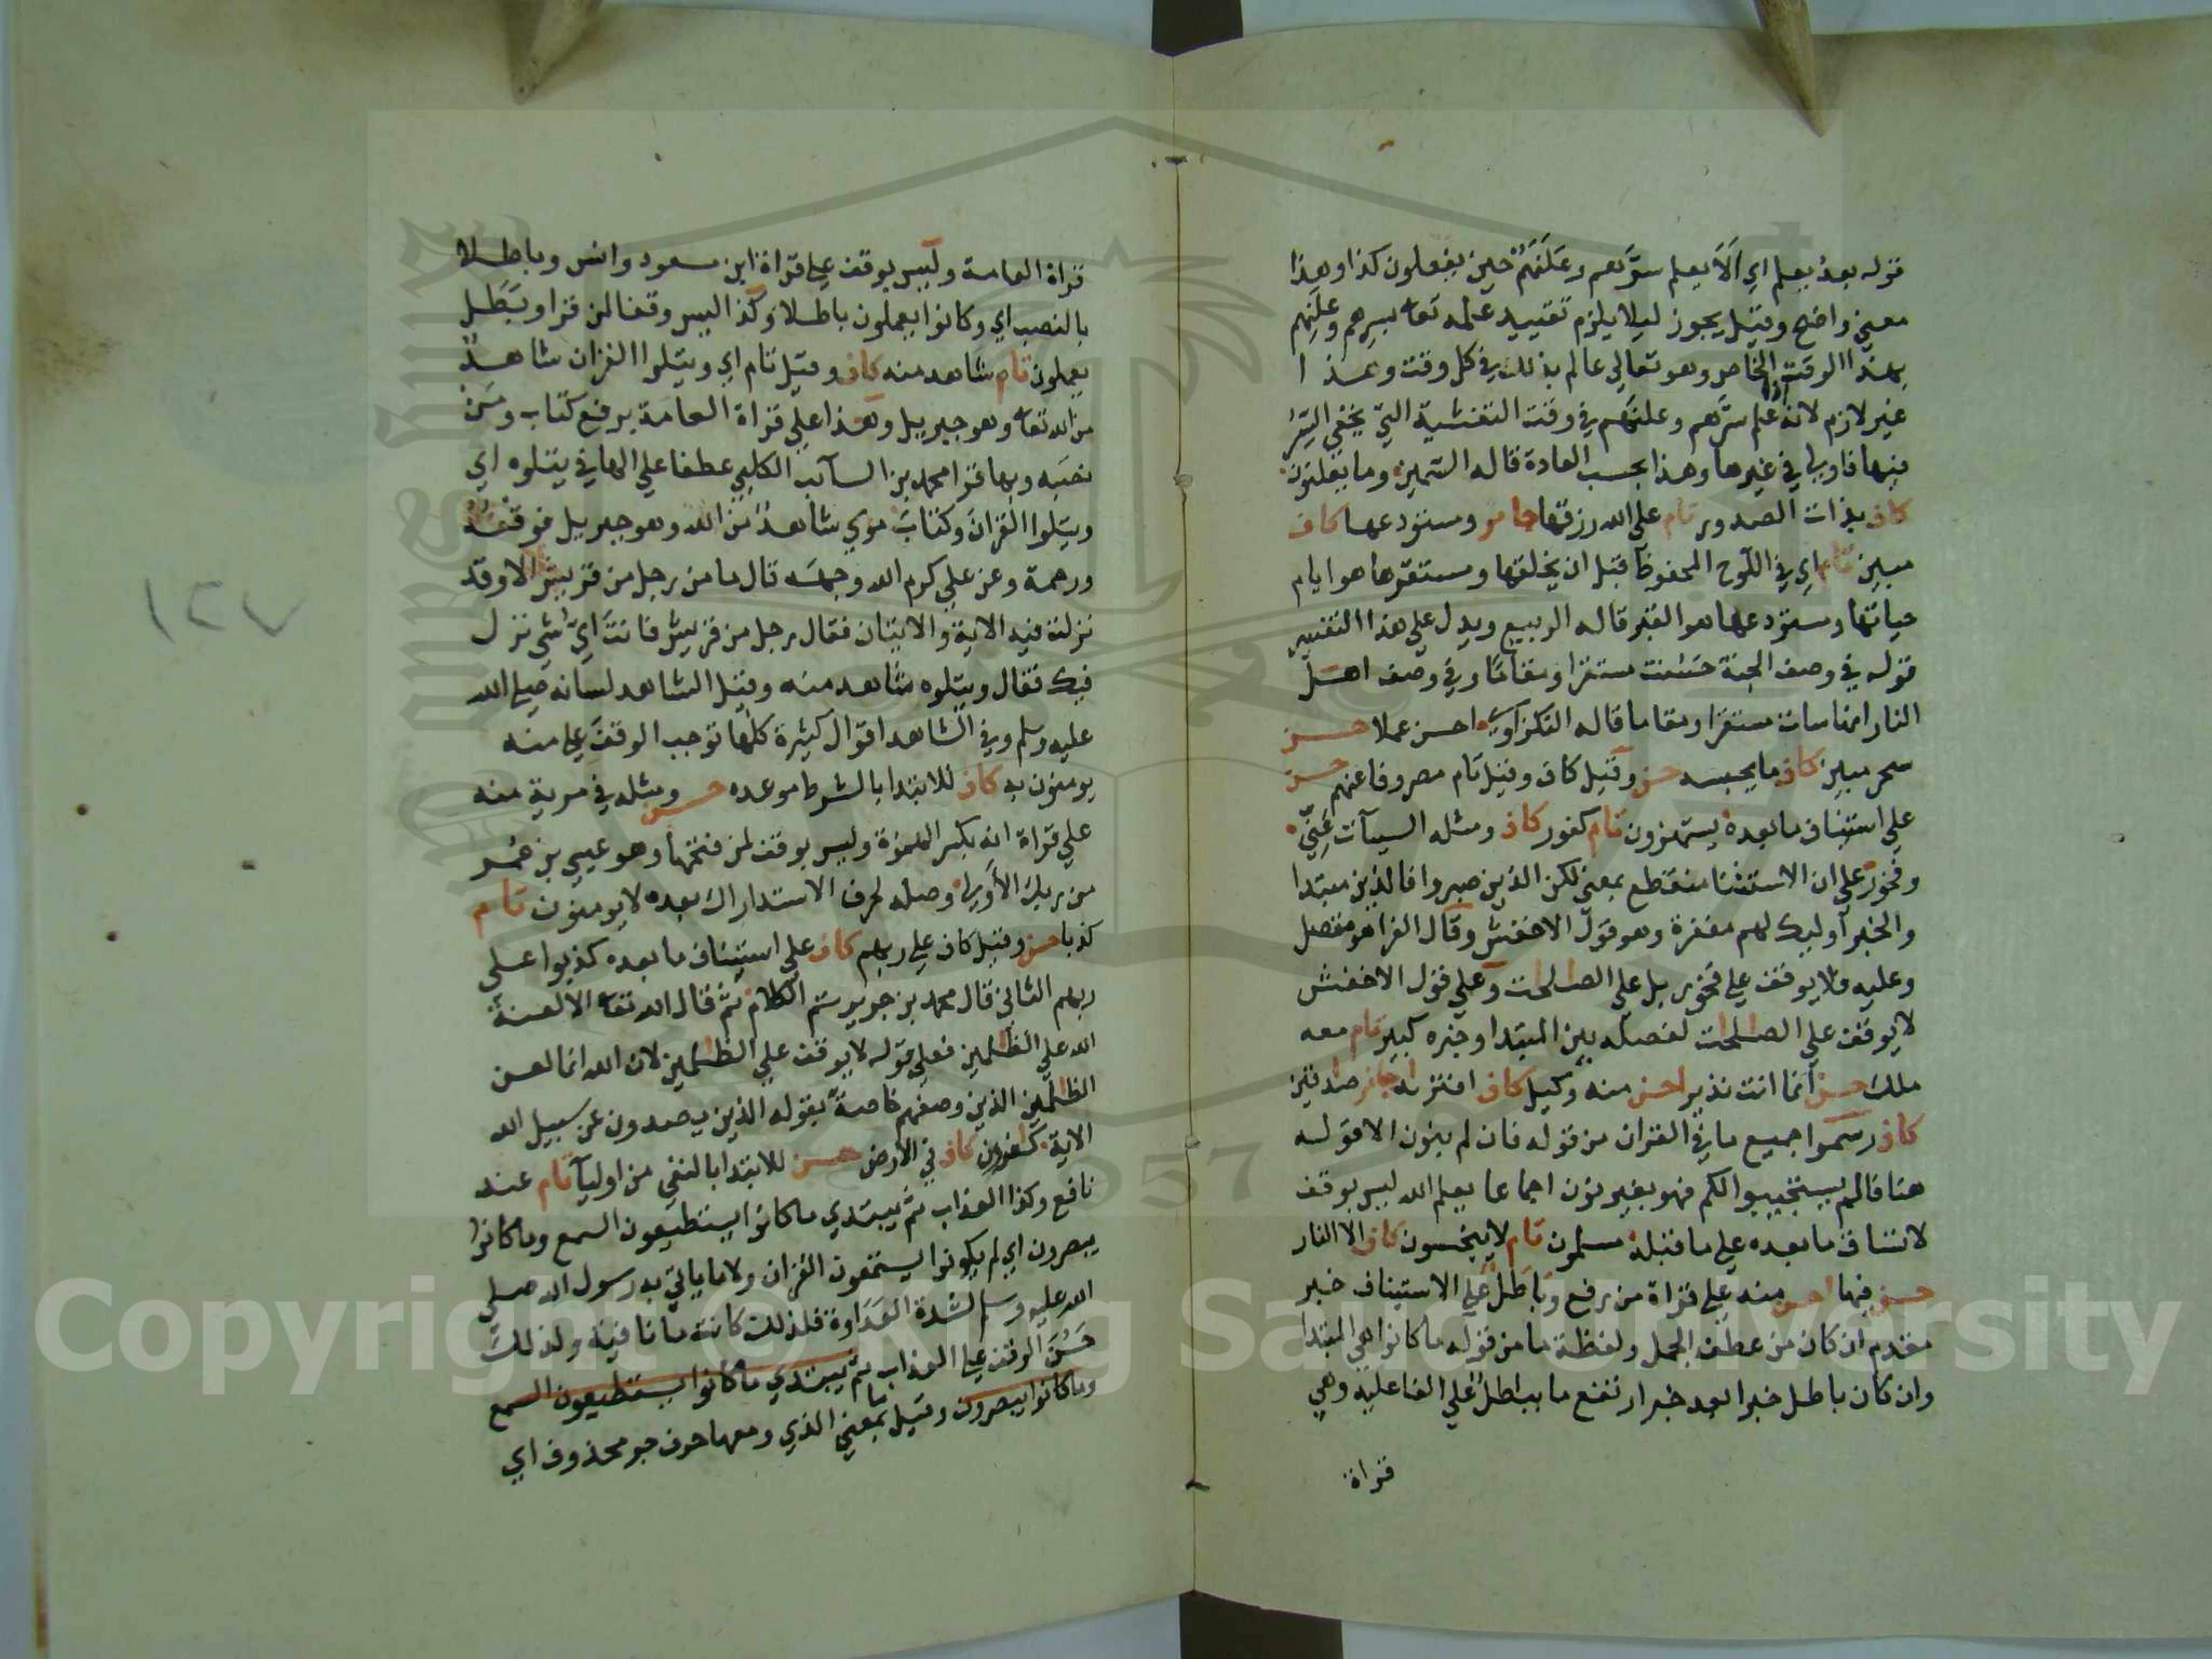 قوله بعد يعلم اي اَلَا يعلم سرَّهم وعَلَنَهُمْ حين يفعلون كذا وهذا
معني واضح وقيل يجوز ليلا يلزم تقييد علمه تعا بسرهم وعلنهم
بهذا الوقت الخاص وهو تعالي عالم بذلك في كل وقت وهذا
غير لازم لانه اذا علم سرَّهم وعلنهم في وقت التغشية التي يخفي السِّرُّ
فيها فاولي في غيرها وهذا بحسب العادة قاله السمين وما يعلنون
كاف بذات الصدور تام علي الله رزقها جايز ومستودعها كاف
مبين تام اي في اللوح المحفوظ قبل ان يخلقها ومستقرها هو ايام
حياتها ومستودعها هو القبر قاله الربيع ويدل علي هذا التفسير
قوله في وصف الجنة حَسُنت مستقرا ومقامًا وفي وصف اهل
النار انها سات مستقرا ومقاما قاله النكزاوي احسن عملا حسن
سحر مبين كاف ما يحبسه حسن وقيل كاف وقيل تام مصروفا عنهم حسن
علي استيناف ما بعده يستهزون تام كفور كاف ومثله السيآت عَنِّي
وفخور علي ان الاستثنا منقطع بمعني لكن الذين صبروا فالذين مبتدا
والخبر اوليك لهم مغفرة وهو قول الاخفش وقال الفرا هو متصل
وعليه فلا يوقف علي فخور بل علي الصلحت وعلي قول الاخفش
لا يوقف علي الصلحت لفصله بين المبتدا وخبره كبير تام معه
ملك حسن انما انت نذير احسن منه وكيل كاف افترىه جايز صدقين
كاف رسموا جميع ما في القران من قوله فان لم بنون الا قوله
هنا فالم يستجيبوا لكم فهو بغير نون اجماعا بعلم الله ليس بوقف
لانساق ما بعده علي ما قبله مسلمون تام لا يبخسون كاف الا النار
حسن فيها احسن منه علي قراة من رفع وباطل علي الاستيناف خبر
مقدم ان كان من عطف الجمل ولفظة ما من قوله ما كانوا هي المبتدا
وان كان باطل خبرا بعد خبر ارتفع ما بباطل علي الفاعلية وهي
قراة
قراة العامة وليس بوقف علي قراة ابن مسعود وانس وباطلا
بالنصب اي وكانوا يعملون باطلا وكذا ليس وقفا لمن قرا وبَطَل
يعملون تام شاهد منه كاف وقيل تام اي ويتلوا القران شاهدٌ
من الله تعا وهو جبريل وهذا علي قراة العامة برفع كتاب ومن
نصبه وبها قرا محمد بن السآئب الكلبي عطفا علي الها في يتلوه اي
ويتلوا القرانَ وكتابَ موسي شاهدٌ من الله وهو جبريل فوقفه
ورحمة وعن علي كرم الله وجهه قال ما من رجل من قريش الا وقد
نزلت فيه الاية والايتان فقال رجل من قريش فانت اي شي نزل
فيك فقال ويتلوه شاهد منه وقيل الشاهد لسانه صلي الله
عليه وسلم وفي الشاهد اقوال كثيرة كلها توجب الوقف علي منه
يومنون به كاف للابتدا بالشرط موعده حسن ومثله في مرية منه
علي قراة انه بكسر الهمزة وليس بوقف لمن فتحها وهو عيسي بن عمر
من ربك الأولي وصله لحرف الاستدراك بعده لا يومنون تام
كذبا حسن وقيل كاف علي ربهم كاف علي استيناف ما بعده كذبوا علي
ربهم الثاني قال محمد بن جرير تم الكلام ثم قال الله تعا الا لعنة
الله علي الظلمين فعلي قوله لا يوقف علي الظلمين لان الله انما لعن
الظلمين الذين وصفهم خاصة بقوله الذين يصدون عن سبيل الله
الاية كفرون كاف في الارض حسن للابتدا بالنفي من اوليآ تام عند
نافع وكذا العذاب ثم يبتدي ما كانوا يستطيعون السمع وما كانوا
يبصرون اي لم يكونوا يستمعون القران ولا ما ياتي به رسول الله صلي
الله عليه وسلم لشدة العداوة فلذلك كانت ما نافية ولذلك
حَسُنَ الوقف علي العذاب ثم يبتدي ما كانوا يستطيعون السمع
وما كانوا يبصرون وقيل ما بمعني الذي ومعها حرف جر محذوف اي
١٢٧
Copyright © King Saud University
1957